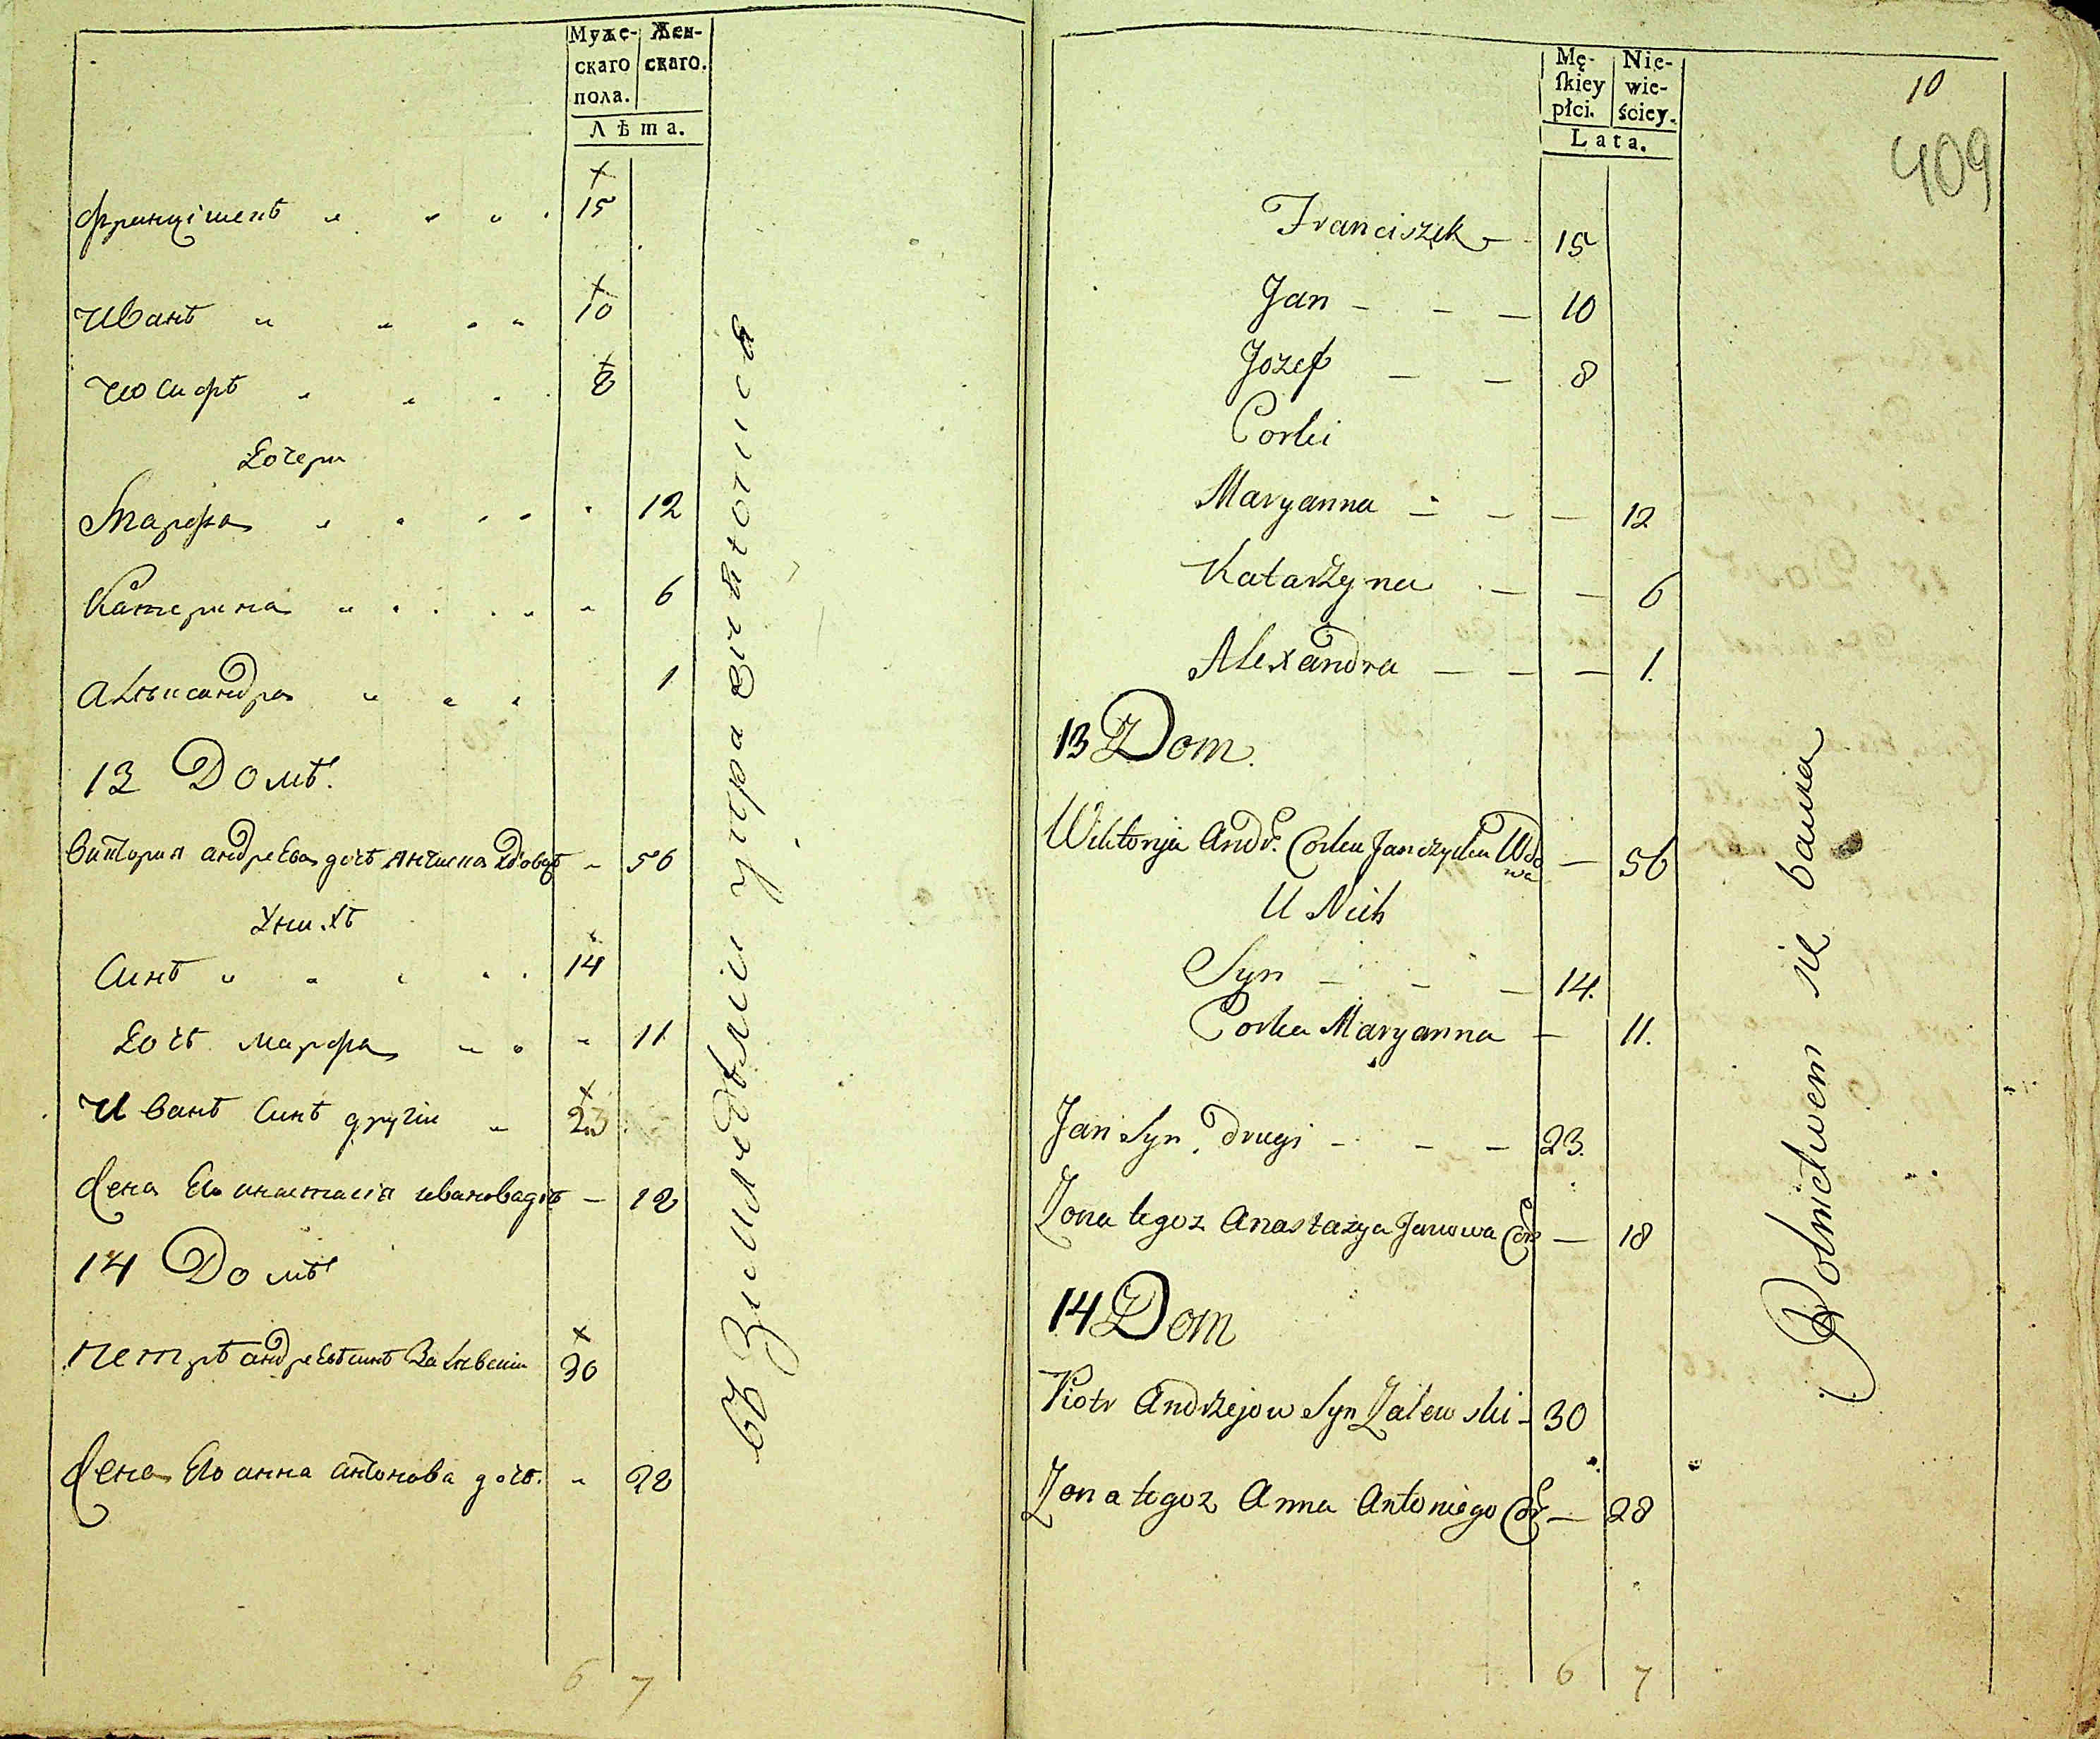 Муже- Жен-
скаго скаго.
пола.
Лѣта.
Францішекъ 15
Иванъ 10
Иосифъ 8
Дочери
Марфа 12
Катерина 6
Алѣксандра 1
13 Домъ.
Виктория андреева дочъ Янчиха вдова 56
У них
Синъ 14
Дочъ марфа 11
Иванъ Синъ другіи 23
Жена Его анастасія иванова дочъ 18
14 Домъ
Петръ андреевъ синъ Залевскіи 30
Жена Его анна антонова дочъ. 28
6 7
въ Земледѣліи упражнѣются
Mę- Nie-
ſkiey wie-
płci. ściey.
Lata.
10
409
Franciszek 15
Jan 10
Jozef 8
Corki
Maryanna 12
Katarzyna 6
Alexandra 1.
13 Dom.
Wiktorya Andr. Corka Janczycka Wdo
wa 56
U Nich
Syn 14.
Corka Maryanna 11.
Jan Syn drugi 23.
Zona tegoz Anastazya Janowa Cor 18
14 Dom
Piotr Andrzejow Syn Zalewski 30
Zona tegoz Anna Antoniego Cor 28
6 7
Rolnictwem się bawia